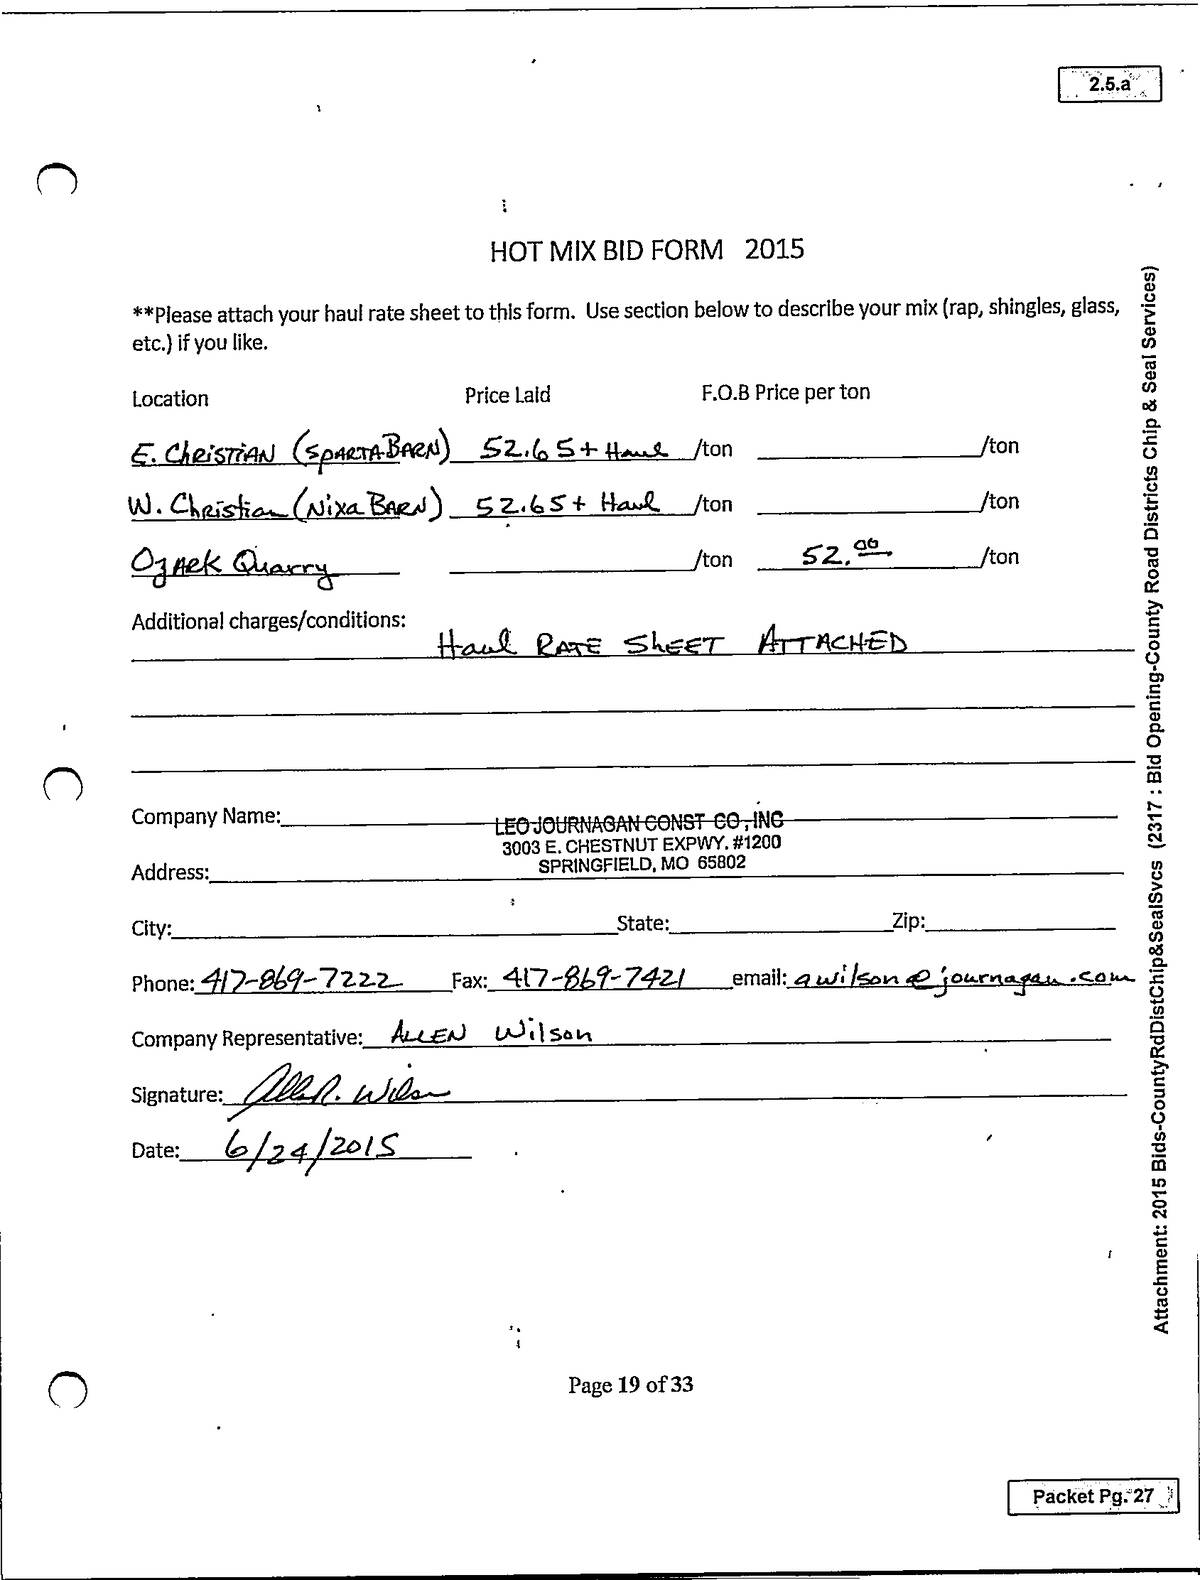 2.5.a
HOT MIX BID FORM 2015
**Please attach your haul rate sheet to this form. Use section below to describe your mix (rap, shingles, glass,
etc.) if you like.
Location Price Laid F.O.B Price per ton
E. Christian (Sparta Barn) 52.65 + Haul /ton /ton
W. Christian (Nixa Barn) 52.65 + Haul /ton /ton
Ozark Quarry /ton 52.00 /ton
Additional charges/conditions:
Haul Rate Sheet Attached
Company Name: LEO JOURNAGAN CONST CO, INC
3003 E. CHESTNUT EXPWY. #1200
Address: SPRINGFIELD, MO 65802
City: State: Zip:
Phone: 417-869-7222 Fax: 417-869-7421 email: awilson@journagan.com
Company Representative: Allen Wilson
Signature: Allen R. Wilson
Date: 6/24/2015
Page 19 of 33
Packet Pg. 27
Attachment: 2015 Bids-CountyRdDistChip&SealSvcs (2317 : Bid Opening-County Road Districts Chip & Seal Services)